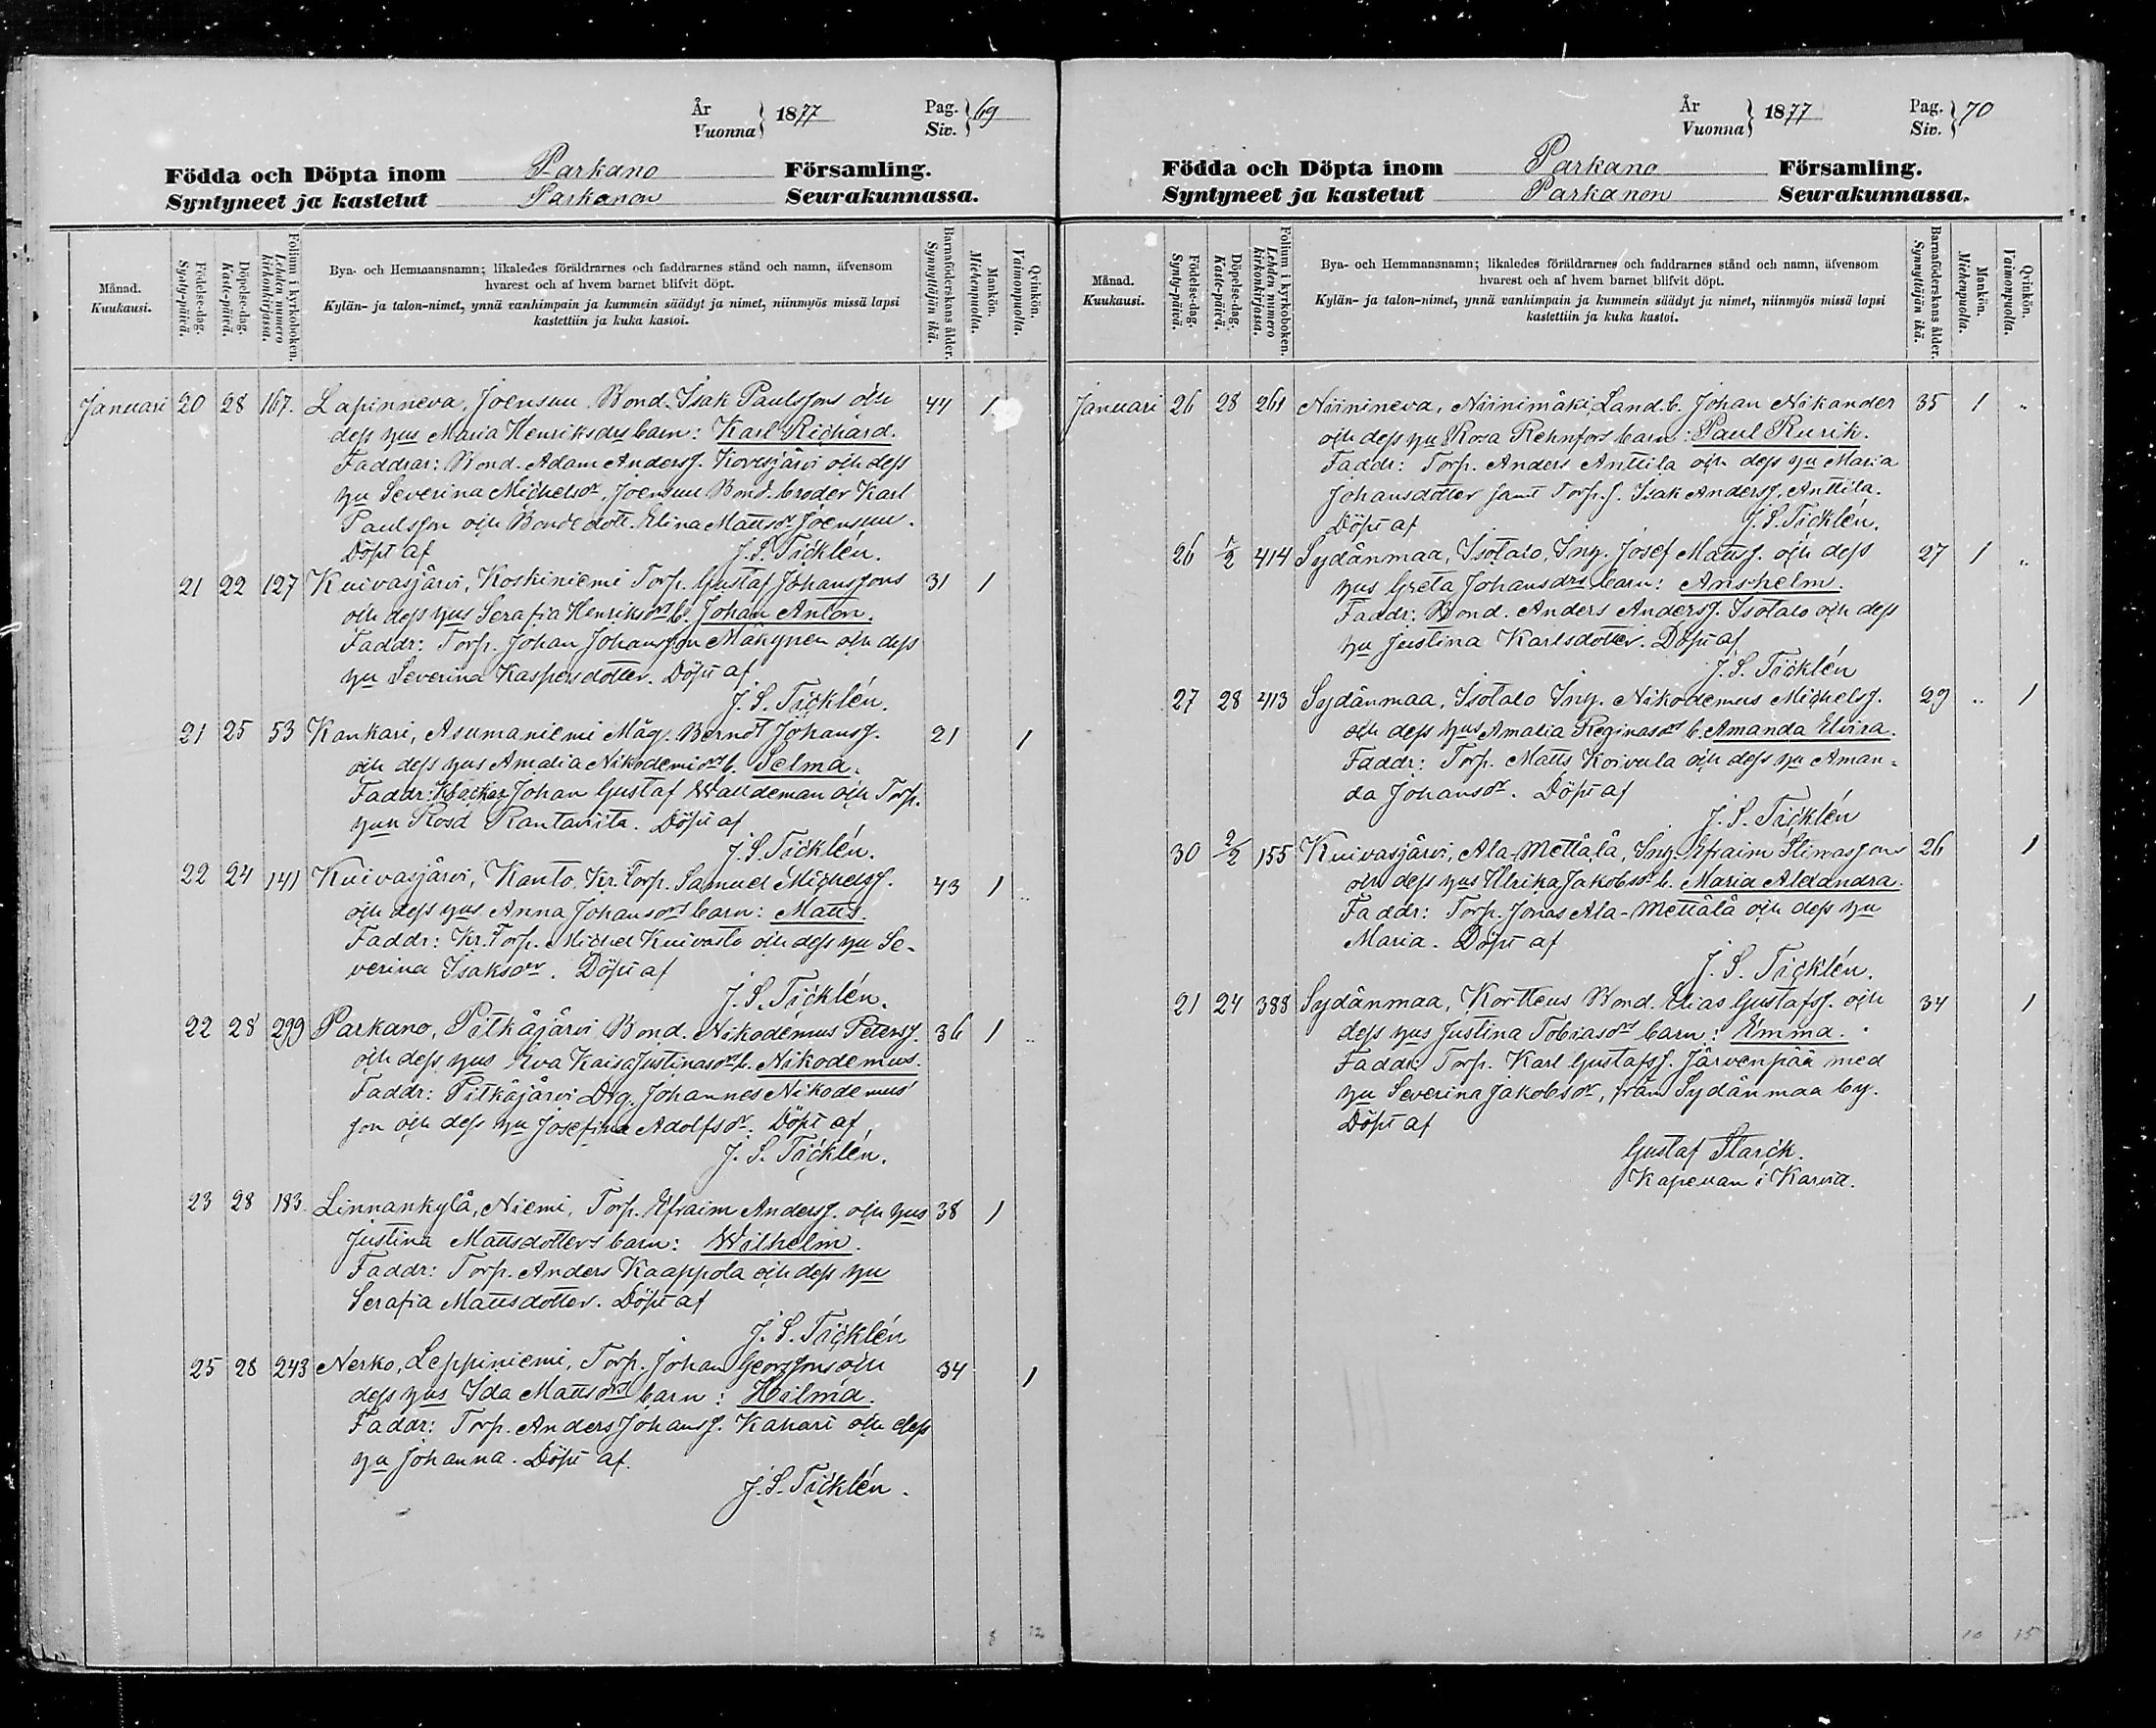 År
Vuonna } 1877
Pag.
Siv. } 69
Födda och Döpta inom Parkano Församling.
Syntyneet ja kastetut Parkanon Seurakunnassa.
Månad.
Kuukausi.
Födelse-dag.
Synty-päivä.
Döpelse-dag.
Kaste-päivä.
Folium i kyrkoboken.
Lehden numero kirkonkirjassa.
Bya- och Hemmansnamn; likaledes föräldrarnes och faddrarnes stånd och namn, äfvensom
hvarest och af hvem barnet blifvit döpt.
Kylän- ja talon-nimet, ynnä vanhimpain ja kummein säädyt ja nimet, niinmyös missä lapsi
kastettiin ja kuka kastoi.
Barnaföderskans ålder.
Synnyttäjän ikä.
Mankön.
Miehenpuolia.
Qvinkön.
Vaimonpuolia.
Januari 20 28 167. Lapinneva, Joensuu Bond. Isak Paulssons och 44 1
dess hus Maria Henriksdrs barn: Karl Richard.
Faddrar: Bond. Adam Anderss. Kovesjärvi och dess
hu Severina Michelsdr, Joensuu Bond. broder Karl
Paulsson och Bondedott. Elina Mattsdr Joensuu.
Döpt af J. S. Ticklén.
21 22 127 Kuivasjärvi, Koskiniemi Torp. Gustaf Johanssons 31 1
och dess hus Serafia Henriksdrs b. Johan Anton.
Faddr: Torp. Johan Johansson Mäkynen och dess
hu Severina Kaspersdotter. Döpt af
J. S. Ticklén.
21 25 53 Kankari, Asumaniemi Måg. Berndt Johanss. 21 1
och dess hus Amalia Nikodemidrs b. Selma.
Faddr: Johan Gustaf Walldeman och Torp.
hun Rosa Rantavita. Döpt af
J. S. Ticklén.
22 24 141 Kuivasjärvi, Kanto Kr. Torp. Samuel Michelss. 43 1 "
och dess hus Anna Johansdrs barn: Matts.
Faddr: Kr. Torp. Michel Kuivasto och dess hu Se-
verina Isaksdr. Döpt af
J. S. Ticklén.
22 28 299 Parkano, Pitkäjärvi Bond. Nikodemus Peterss. 36 1 "
och dess hus Eva Kaisa Justinasdrs b. Nikodemus.
Faddr: Pitkäjärvi Drg. Johannes Nikodemus
son och dess hu Josefina Adolfsdr. Döpt af
J. S. Ticklén.
23 28 183. Linnankylä, Niemi, Torp. Efraim Anderss. och hus 38 1
Justina Mattsdotters barn: Wilhelm.
Faddr: Torp. Anders Kaappola och dess hu
Serafia Mattsdotter. Döpt af
J. S. Ticklén
25 28 243 Nerko, Leppiniemi, Torp. Johan Georgssons och 34 1
dess hus Ida Mattsdrs barn: Hilma.
Faddr: Torp. Anders Johanss. Kanari och dess
hu Johanna. Döpt af
J. S. Ticklén.
8 12
År
Vuonna } 1877
Pag.
Siv. } 70
Födda och Döpta inom Parkano Församling.
Syntyneet ja kastetut Parkanon Seurakunnassa.
Månad.
Kuukausi.
Födelse-dag.
Synty-päivä.
Döpelse-dag.
Kaste-päivä.
Folium i kyrkoboken.
Lehden numero kirkonkirjassa.
Bya- och Hemmansnamn; likaledes föräldrarnes och faddrarnes stånd och namn, äfvensom
hvarest och af hvem barnet blifvit döpt.
Kylän- ja talon-nimet, ynnä vanhimpain ja kummein säädyt ja nimet, niinmyös missä lapsi
kastettiin ja kuka kastoi.
Barnaföderskans ålder.
Synnyttäjän ikä.
Mankön.
Miehenpuolia.
Qvinkön.
Vaimonpuolia.
Januari 26 28 261 Niinineva, Niinimäki, Land.b. Johan Nikander 35 1 "
och dess hu Rosa Rehnfors barn: Paul Rurik.
Faddr: Torp. Anders Anttila och dess hu Maria
Johansdotter samt Torp.s. Isak Anderss. Anttila.
Döpt af J. S. Ticklén.
26 1/2 414 Sydänmaa, Isotalo, Ing. Josef Matts. och dess 27 1 "
hus Greta Johansdrs barn: Anshelm.
Faddr: Bond. Anders Anderss. Isotalo och dess
hu Justina Karlsdotter. Döpt af
J. S. Ticklén
27 28 413 Sydänmaa, Isotalo Ing. Nikodemus Michelss. 29 " 1
och dess hus Amalia Reginasdrs b. Amanda Elvira.
Faddr: Torp. Matts Koivula och dess hu Aman-
da Johansdr. Döpt af
J. S. Ticklén
30 2/2 155 Kuivasjärvi, Ala-Mettälä, Ing. Efraim 26 1
och dess hus Ulrika Jakobsdrs b. Maria Alexandra.
Faddr: Torp. Jonas Ala-Mettälä och dess hu
Maria. Döpt af
J. S. Ticklén.
21 24 388 Sydänmaa, Kortteus Bond. Elias Gustafss. och 34 1
dess hus Justina Tobiasdrs barn: Emma.
Faddr: Torp. Karl Gustafss. Järvenpää med
hu Severina Jakobsdr, från Sydänmaa by.
Döpt af
Gustaf Starck.
Kapellan i Karvia.
10 15